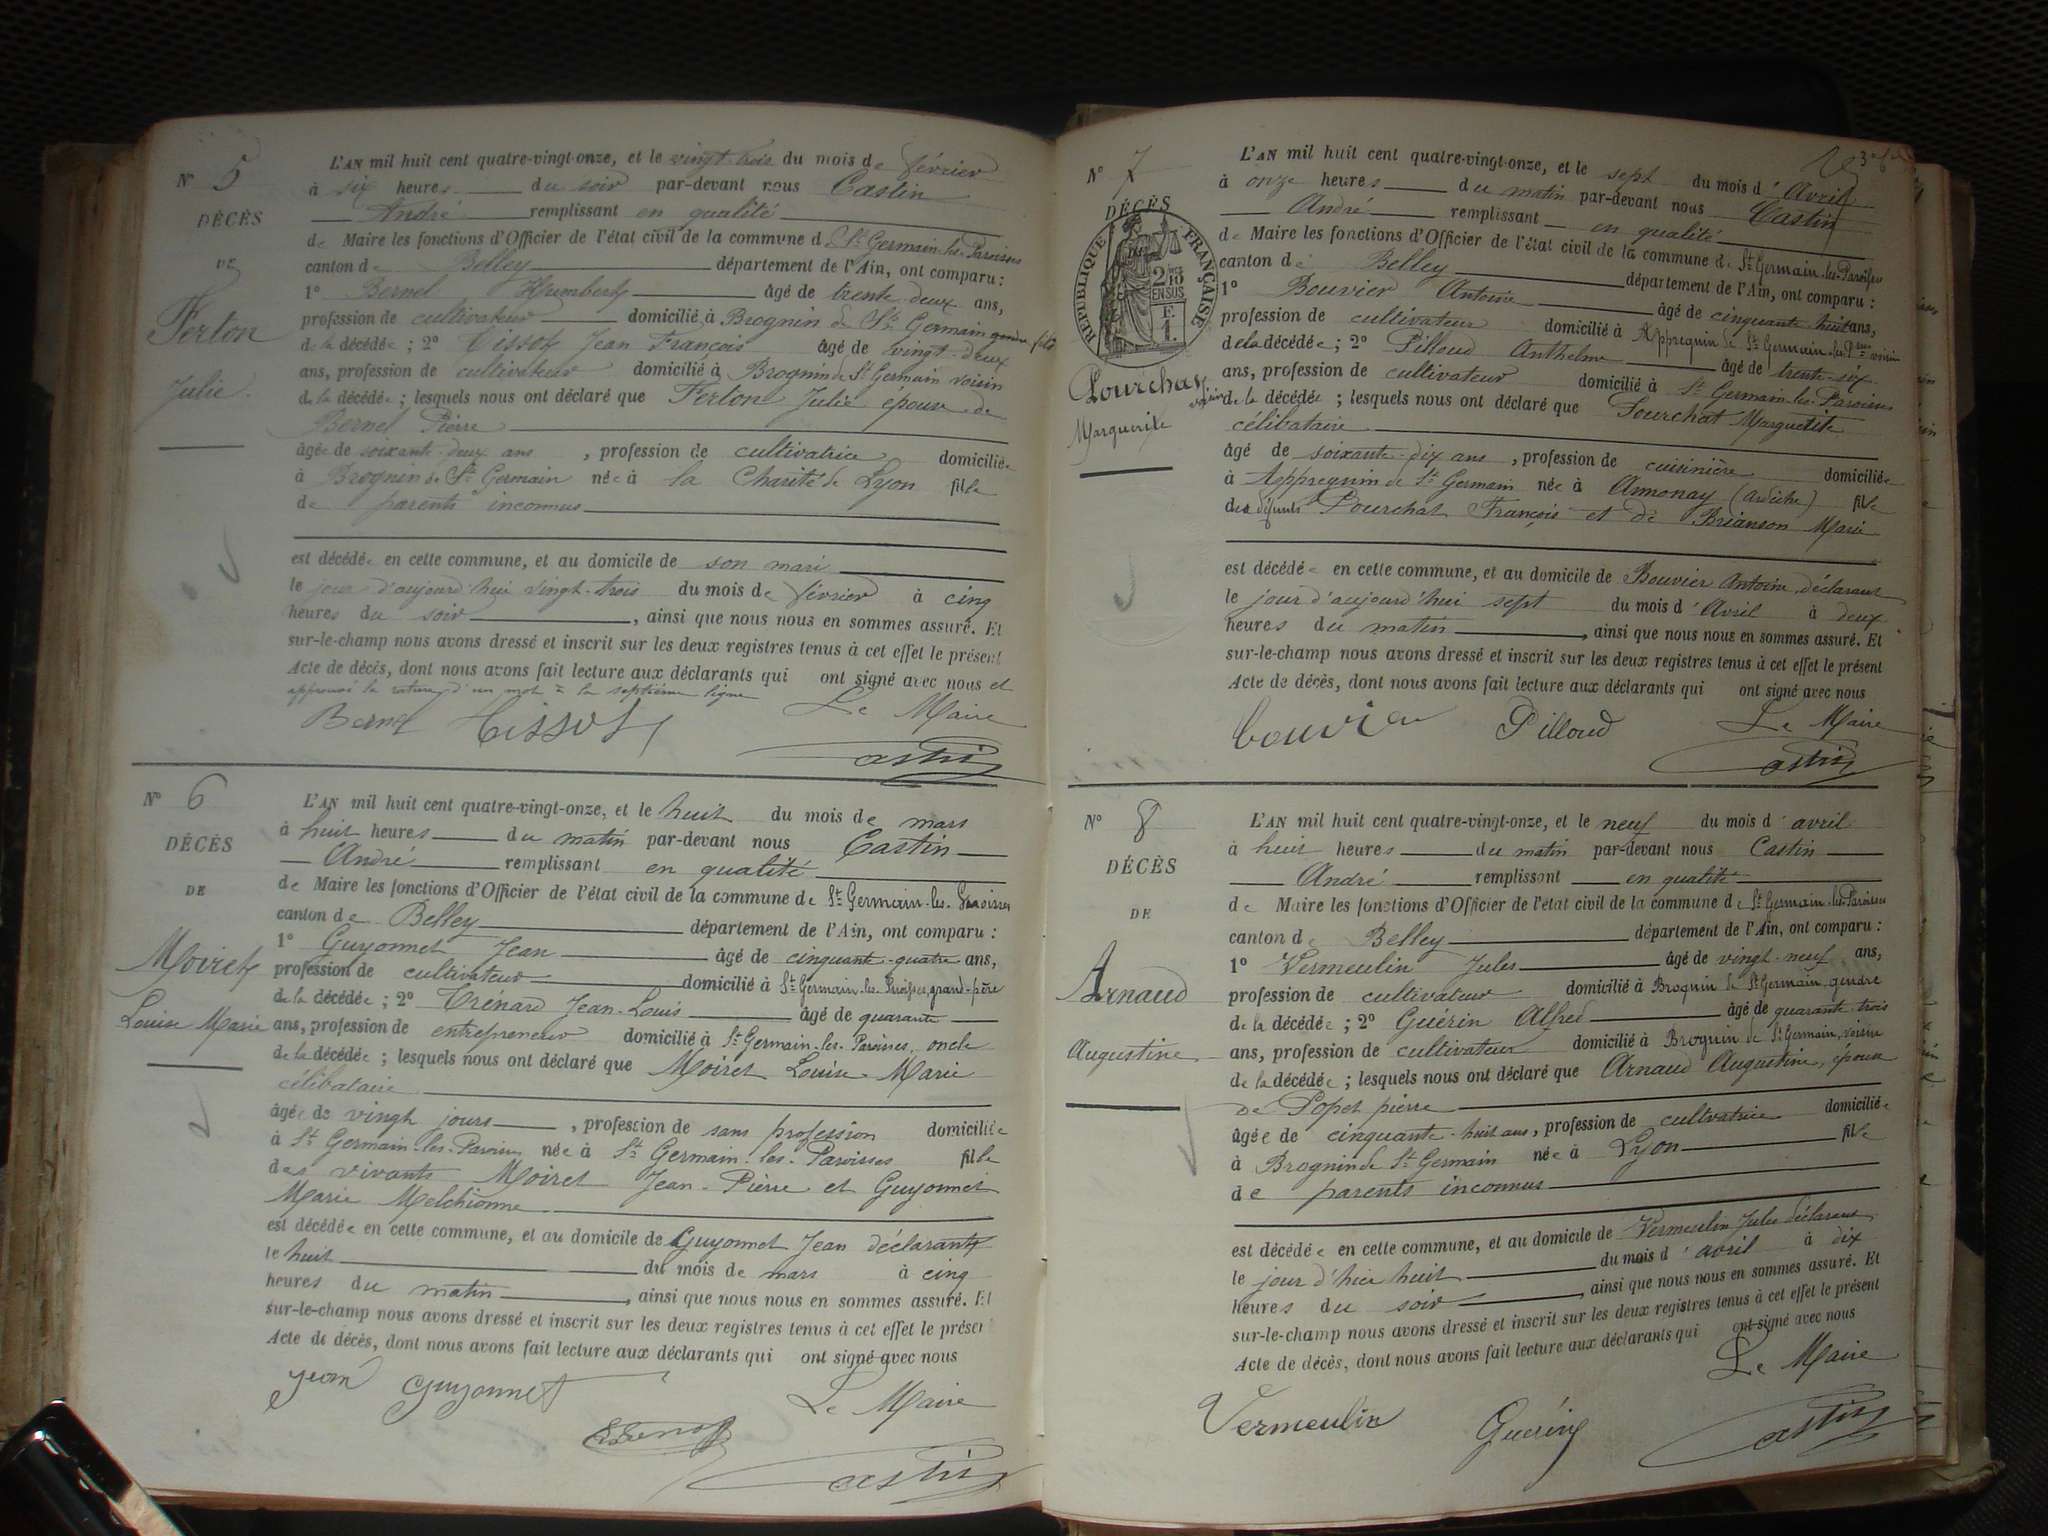 N° 5
DÉCÈS
DE
Ferlon
Julie
L'AN mil huit cent quatre-vingt-onze, et le vingt-trois du mois de février
à six heures du soir par-devant nous Castin
André remplissant en qualité
de Maire les fonctions d'Officier de l'état civil de la commune d St Germain-les-Paroisses
canton de Belley département de l'Ain, ont comparu :
1° Bernel Humbert âgé de trente deux ans,
profession de cultivateur domicilié à Brognin de St Germain gendre fils
de la décédée ; 2° Tissot Jean François âgé de vingt-deux
ans, profession de cultivateur domicilié à Brognin de St Germain voisin
de la décédée ; lesquels nous ont déclaré que Ferlon Julie épouse de
Bernel Pierre
âgée de soixante-deux ans, profession de cultivatrice domiciliée
à Brognin de St Germain née à la Charité de Lyon fille
de parents inconnus
est décédée en cette commune, et au domicile de son mari
le jour d'aujourd'hui vingt-trois du mois de février à cinq
heures du soir, ainsi que nous nous en sommes assuré. Et
sur-le-champ nous avons dressé et inscrit sur les deux registres tenus à cet effet le présent
Acte de décès, dont nous avons fait lecture aux déclarants qui ont signé avec nous et
approuvé la rature d'un mot à la septième ligne
Le Maire
Bernel Tissot
Castin
N° 6
DÉCÈS
DE
Moiret
Louise Marie
L'AN mil huit cent quatre-vingt-onze, et le huit du mois de mars
à huit heures du matin par-devant nous Castin
André remplissant en qualité
de Maire les fonctions d'Officier de l'état civil de la commune de St Germain-les-Paroisses
canton de Belley département de l'Ain, ont comparu :
1° Guyonnet Jean âgé de cinquante-quatre ans,
profession de cultivateur domicilié à St Germain-les-Paroisses, grand-père
de la décédée ; 2° Trénard Jean-Louis âgé de quarante
ans, profession de entrepreneur domicilié à St Germain-les-Paroisses, oncle
de la décédée ; lesquels nous ont déclaré que Moiret Louise Marie
célibataire
âgée de vingt jours, profession de sans profession domiciliée
à St Germain-les-Paroisses née à St Germain-les-Paroisses fille
des vivants Moiret Jean-Pierre et Guyonnet
Marie Melchionne
est décédée en cette commune, et au domicile de Guyonnet Jean déclarant
le huit du mois de mars à cinq
heures du matin, ainsi que nous nous en sommes assuré. Et
sur-le-champ nous avons dressé et inscrit sur les deux registres tenus à cet effet le présent
Acte de décès, dont nous avons fait lecture aux déclarants qui ont signé avec nous
Jean Guyonnet
Le Maire
Castin
N° 7
DÉCÈS
RÉPUBLIQUE FRANÇAISE
2/10
EN SUS
Pourchat
Marguerite
L'AN mil huit cent quatre-vingt-onze, et le sept du mois d'Avril
à onze heures du matin par-devant nous Castin
André remplissant en qualité
de Maire les fonctions d'Officier de l'état civil de la commune de St Germain-les-Paroisses
canton de Belley département de l'Ain, ont comparu :
1° Bouvier Antoine âgé de cinquante huit ans,
profession de cultivateur domicilié à Appregnin de St Germain-les-Pses voisin
de la décédée ; 2° Pilloud Anthelme âgé de trente-six
ans, profession de cultivateur domicilié à St Germain-les-Paroisses
voisin de la décédée ; lesquels nous ont déclaré que Pourchat Marguerite
célibataire
âgé de soixante-dix ans, profession de cuisinière domiciliée
à Appregnin de St Germain née à Annonay (ardèche) fille
des défunts Pourchat François et de Brianson Marie
est décédée en cette commune, et au domicile de Bouvier Antoine, déclarant
le jour d'aujourd'hui sept du mois d'Avril à deux
heures du matin, ainsi que nous nous en sommes assuré. Et
sur-le-champ nous avons dressé et inscrit sur les deux registres tenus à cet effet le présent
Acte de décès, dont nous avons fait lecture aux déclarants qui ont signé avec nous
Bouvier Pilloud Le Maire
Castin
N° 8
DÉCÈS
DE
Arnaud
Augustine
L'AN mil huit cent quatre-vingt-onze, et le neuf du mois d'avril
à huit heures du matin par-devant nous Castin
André remplissant en qualité
de Maire les fonctions d'Officier de l'état civil de la commune de St Germain-les-Paroisses
canton de Belley département de l'Ain, ont comparu :
1° Vermeulin Jules âgé de vingt-neuf ans,
profession de cultivateur domicilié à Brognin de St Germain, gendre
de la décédée ; 2° Guérin Alfred âgé de quarante-trois
ans, profession de cultivateur domicilié à Brognin de St Germain, voisin
de la décédée ; lesquels nous ont déclaré que Arnaud Augustine, épouse
de Popet pierre
âgée de cinquante-huit ans, profession de cultivatrice domiciliée
à Brognin de St Germain née à Lyon fille
de parents inconnus
est décédée en cette commune, et au domicile de Vermeulin Jules déclarant
le jour d'hier huit du mois d'avril à dix
heures du soir, ainsi que nous nous en sommes assuré. Et
sur-le-champ nous avons dressé et inscrit sur les deux registres tenus à cet effet le présent
Acte de décès, dont nous avons fait lecture aux déclarants qui ont signé avec nous
Le Maire
Vermeulin Guérin
Castin